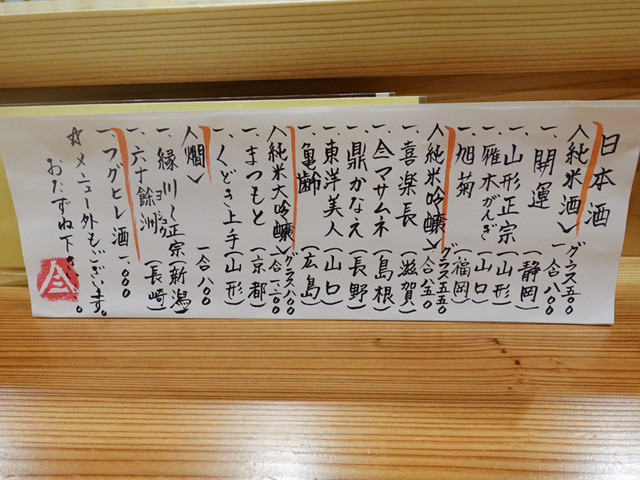 日本酒
〈純米酒〉グラス五〇〇 一合八〇〇
一、開運(静岡)
一、山形正宗(山形)
一、雁木がんぎ(山口)
一、旭菊(福岡)
〈純米吟醸〉グラス五五〇 一合八五〇
一、喜楽長(滋賀)
一、マサムネ(島根)
一、鼎かなえ(長野)
一、東洋美人(山口)
一、亀齢(広島)
〈純米大吟醸〉グラス八〇〇 一合一二〇〇
一、まつもと(京都)
一、くどき上手(山形)
〈燗〉一合八〇〇
一、緑川〜正宗(新潟)
一、六十餘洲ヨシュウ(長崎)
一、フグヒレ酒 一、〇〇〇
☆メニュー外もございます。
おたずね下さい。